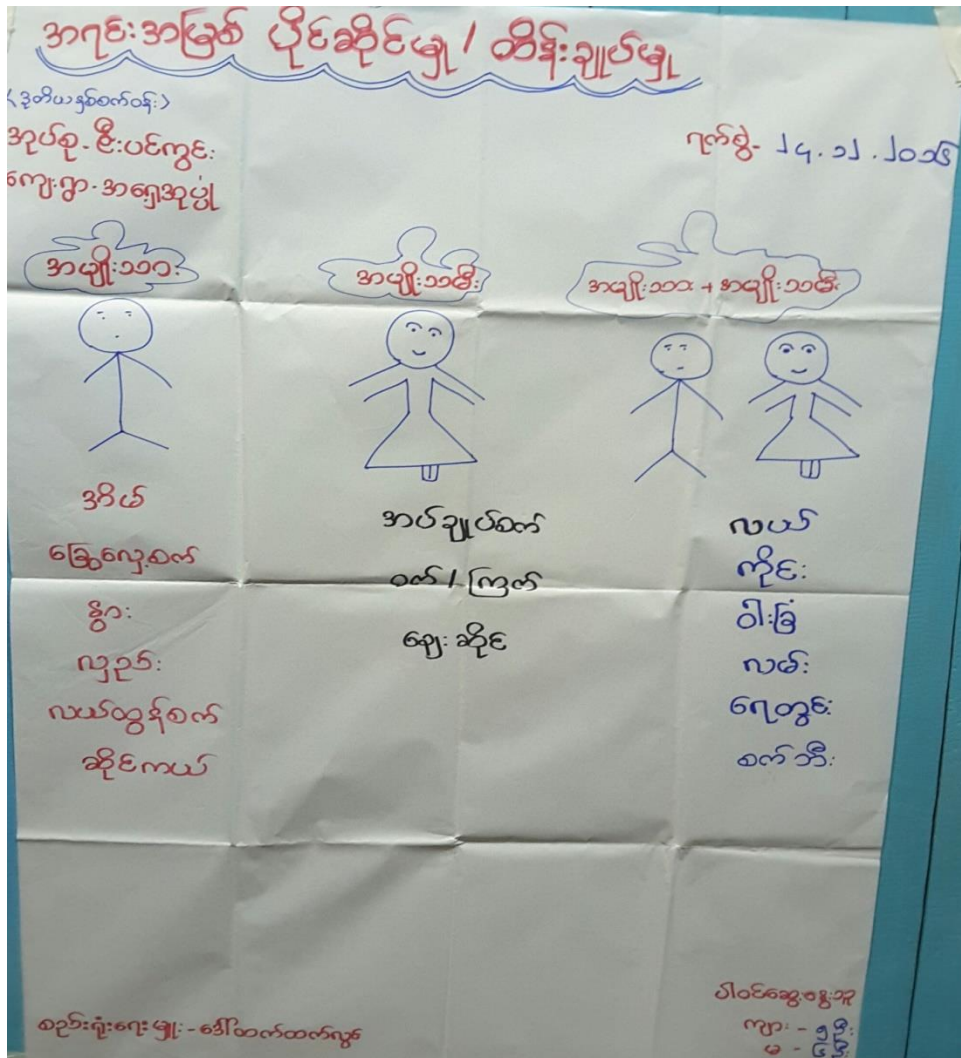 အရင်းအမြစ် ပိုင်ဆိုင်မှု / ထိန်းချုပ်မှု
(ဒုတိယနှစ်စက်ဝန်း)
အုပ်စု - ဦးပင်ကွင်း
ရက်စွဲ - ၂၄.၁၂.၂၀၁၆
ကျေးရွာ - အရှေ့အုပ်ပို
အမျိုးသား
အမျိုးသမီး
အမျိုးသား + အမျိုးသမီး
ဒဂိမ်
ခြွေလှေ့စက်
နွား
လှည်း
လယ်ထွန်စက်
ဆိုင်ကယ်
အပ်ချုပ်စက်
ဝက် / ကြက်
ဈေးဆိုင်
လယ်
ကိုင်း
ဝါးခြံ
လမ်း
ရေတွင်း
စက်ဘီး
စည်းရုံးရေးမှူး - ဒေါ်ထက်ထက်လွင်
ပါဝင်ဆွေးနွေးသူ
ကျား - ၅ ဦး
မ -